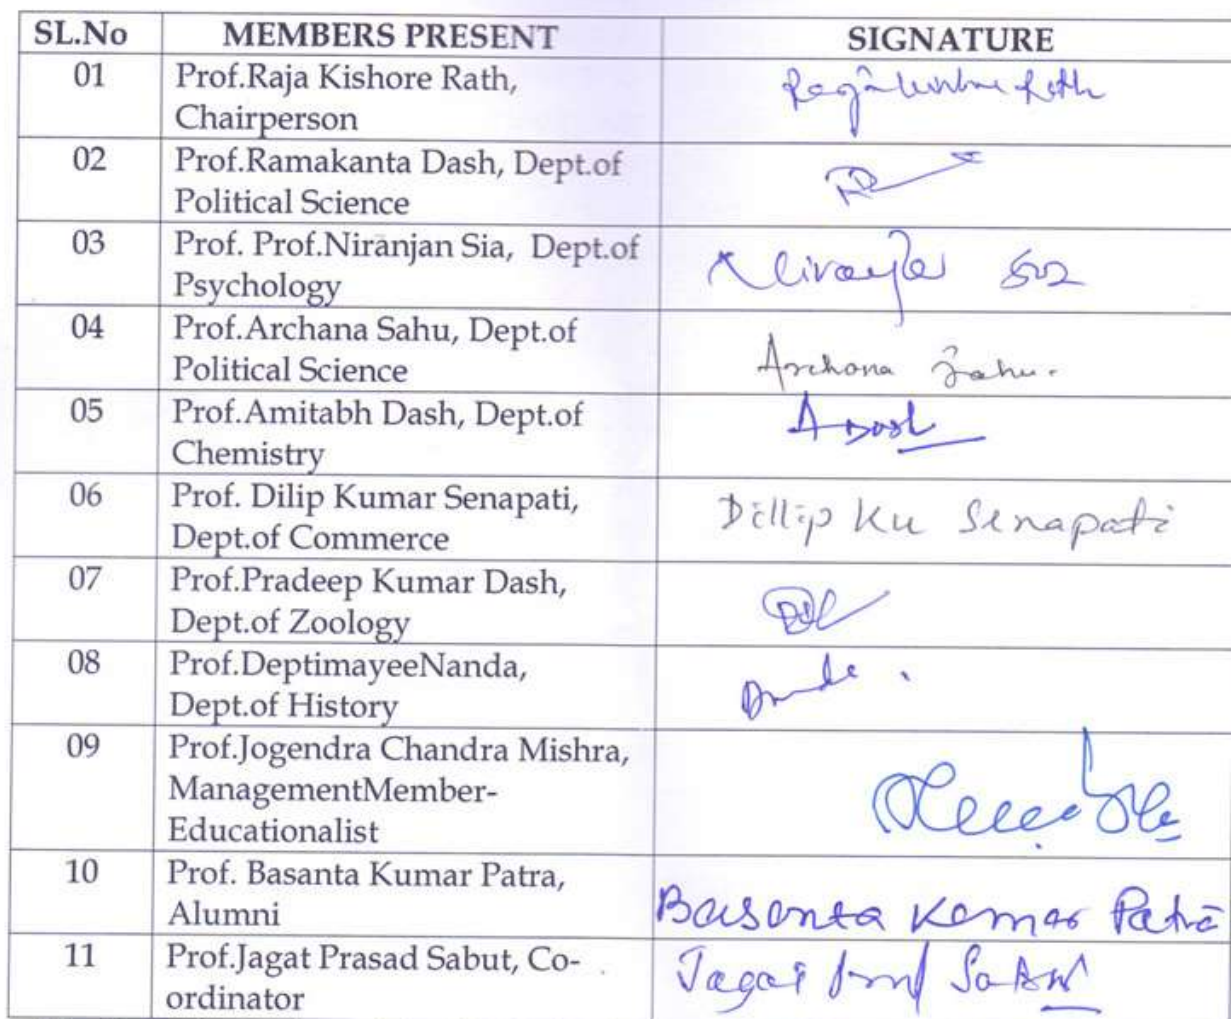 SL.No MEMBERS PRESENT SIGNATURE
01 Prof.Raja Kishore Rath,
Chairperson
Rath
02 Prof.Ramakanta Dash, Dept.of
Political Science
03 Prof. Prof.Niranjan Sia, Dept.of
Psychology
04 Prof.Archana Sahu, Dept.of
Political Science
Archana Sahu.
05 Prof.Amitabh Dash, Dept.of
Chemistry
A Dash
06 Prof. Dilip Kumar Senapati,
Dept.of Commerce
Dillip Ku Senapati
07 Prof.Pradeep Kumar Dash,
Dept.of Zoology
08 Prof.DeptimayeeNanda,
Dept.of History
09 Prof.Jogendra Chandra Mishra,
ManagementMember-
Educationalist
10 Prof. Basanta Kumar Patra,
Alumni
Basanta Kumar Patra
11 Prof.Jagat Prasad Sabut, Co-
ordinator
Jagat